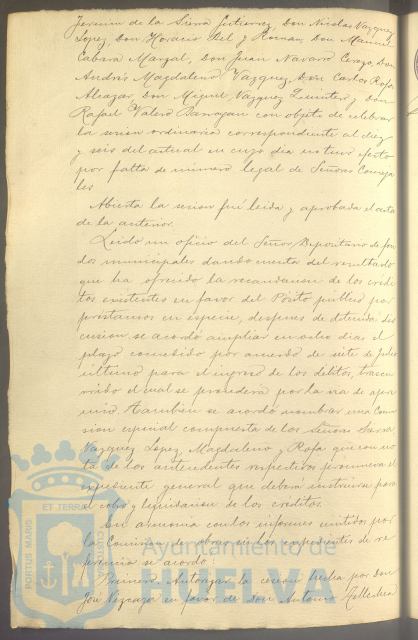 Jeronimo de la Sierra Gutierrez, Don Nicolas Vazquez
Lopez, Don Horacio Bel y Roman, Don Manuel
Cabara Margal, Don Juan Navarro Cerezo, Don
Andrés Magdaleno Vazquez, Don Carlos Rofa
Alcazar, Don Miguel Vazquez Quintero y Don
Rafael Valero Barragan con objeto de celebrar
la sesion ordinaria correspondiente al diez
y seis del actual en cuyo dia no tuvo efecto
por falta de número legal de Señores Conceja
les
Abierta la sesion fué leida y aprobada el acta
de la anterior.
Leido un oficio del Señor Depositario de fon
dos municipales dando cuenta del resultado
que ha ofrecido la recaudacion de los credi
tos existentes en favor del Pósito publico por
prestamos en especie, despues de detenida dis
cusion se acordó ampliar en ocho dias el
plazo concedido por acuerdo de siete de Julio
ultimo para el ingreso de los debitos, trascu
rrido el cual se procederá por la via de apre
mio. Tambien se acordó nombrar una Comi
sion especial compuesta de los Señores Sierra
Vazquez Lopez, Magdaleno y Rofa que con vis
ta de los antecedentes respectivos promueva el
expediente general que deberá instruirse para
el cobro y liquidacion de los creditos.
En armonia con los informes emitidos por
la Comision de obras en los expedientes de re
ferencia se acordó:
Primero. Autorizar la cesion hecha por Don
José Vizcaya en favor de Don Antonio
PORTUS MARIS
ET TERRAE
CUSTODIA
Ayuntamiento de
HUELVA